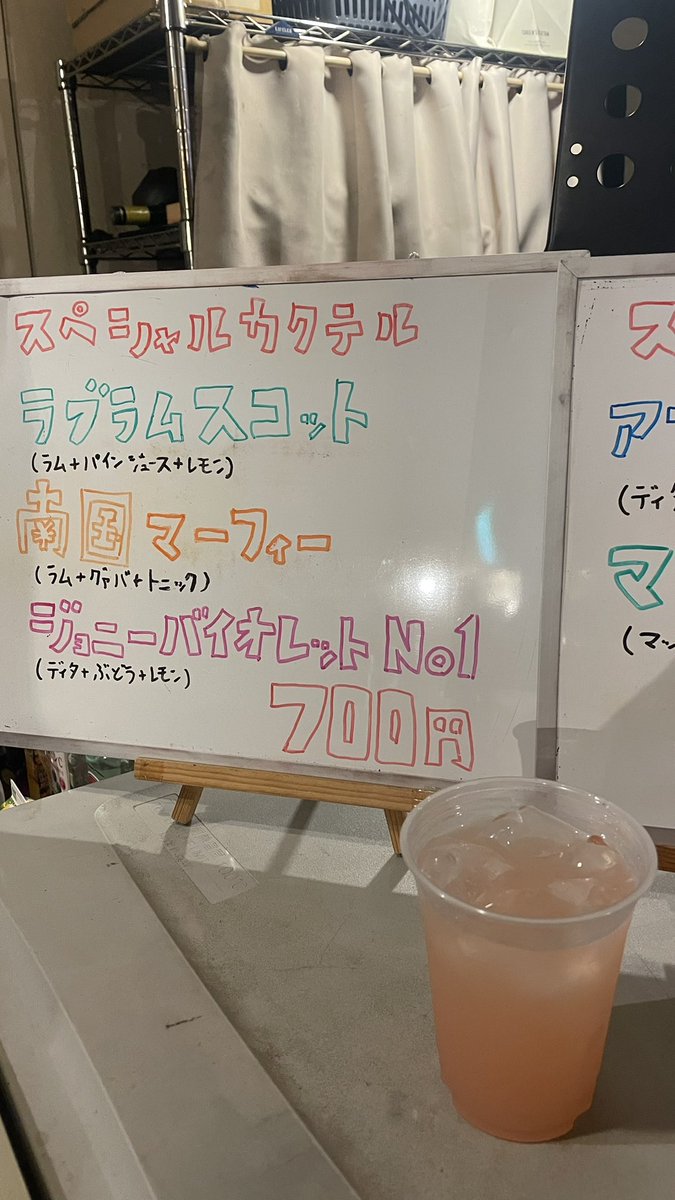 スペシャルカクテル
ラブラムスコット
(ラム+パインジュース+レモン)
南国マーフィー
(ラム+グァバ+トニック)
ジョニーバイオレットNo1
(ディタ+ぶどう+レモン)
700円
ス
ア
(ディタ
マ
(マッ